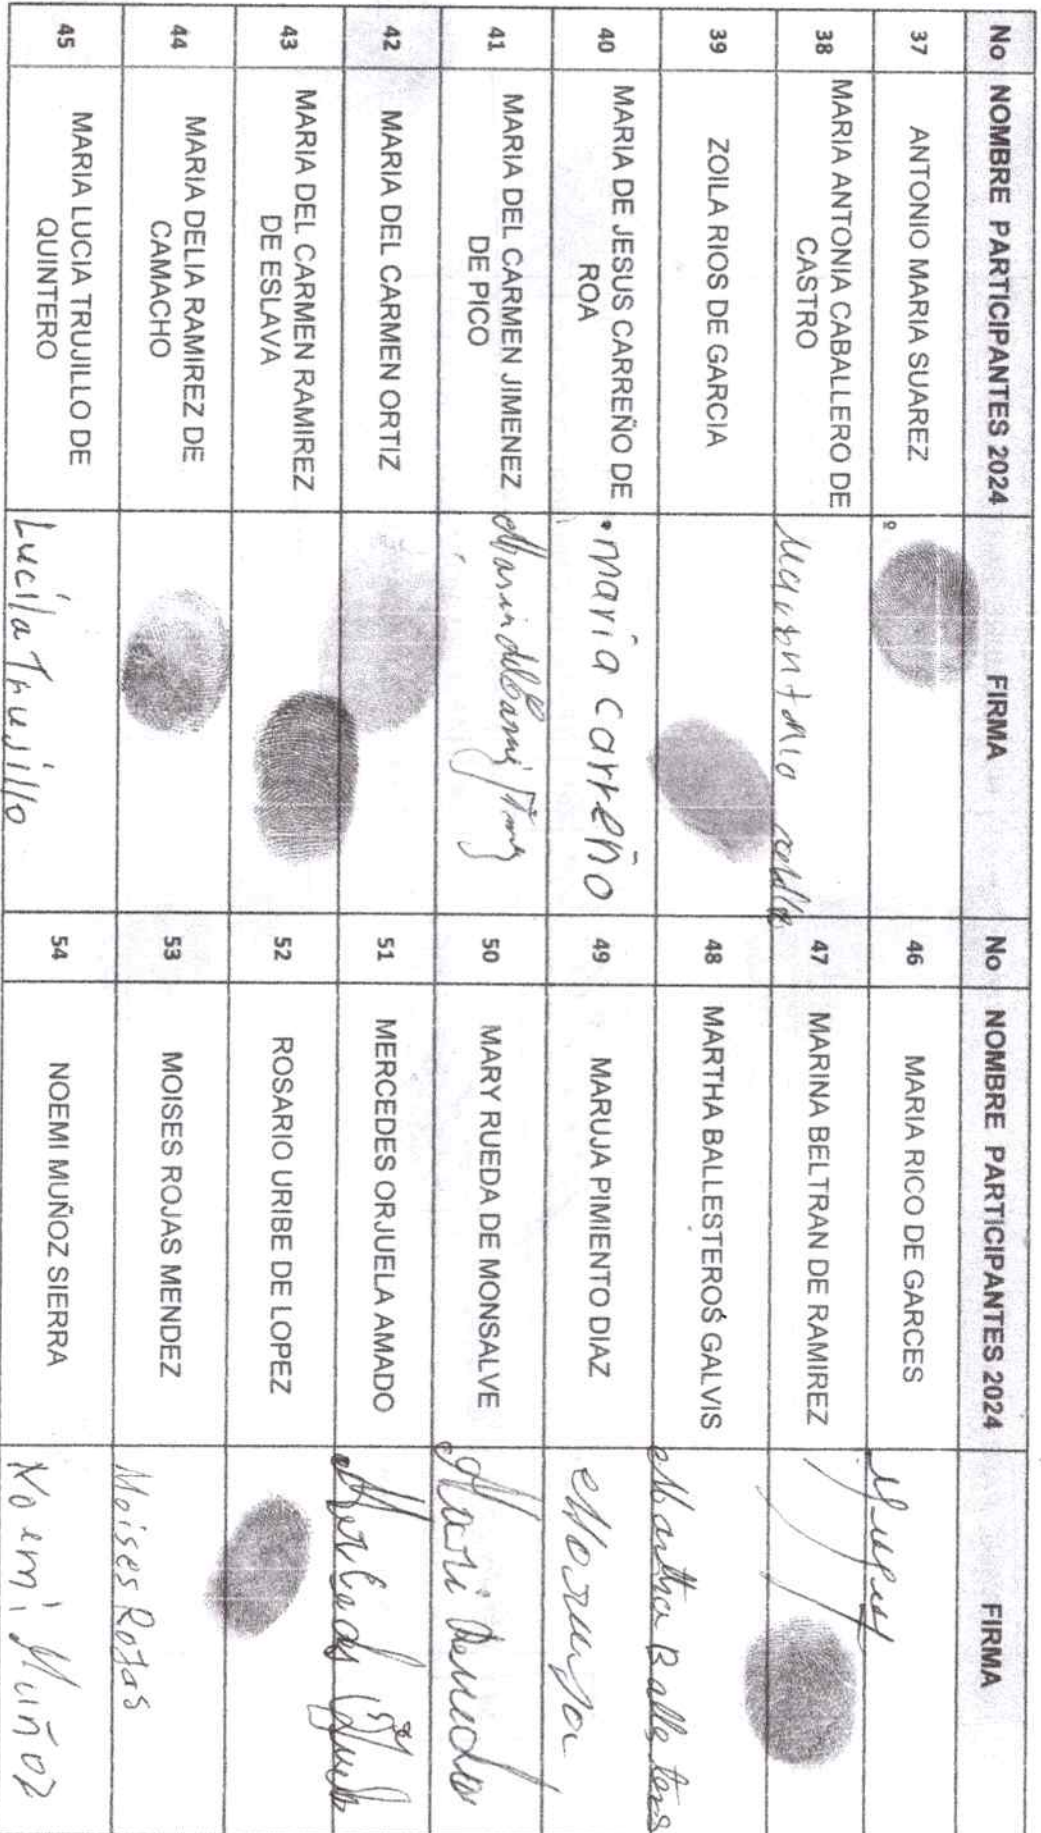 No NOMBRE PARTICIPANTES 2024 FIRMA No NOMBRE PARTICIPANTES 2024 FIRMA
37 ANTONIO MARIA SUAREZ 46 MARIA RICO DE GARCES
38 MARIA ANTONIA CABALLERO DE
CASTRO
47 MARINA BELTRAN DE RAMIREZ
39 ZOILA RIOS DE GARCIA 48 MARTHA BALLESTEROS GALVIS Martha Ballesteros
40 MARIA DE JESUS CARREÑO DE
ROA
maría Carreño
49 MARUJA PIMIENTO DIAZ Maruja
41 MARIA DEL CARMEN JIMENEZ
DE PICO
50 MARY RUEDA DE MONSALVE
42 MARIA DEL CARMEN ORTIZ 51 MERCEDES ORJUELA AMADO
43 MARIA DEL CARMEN RAMIREZ
DE ESLAVA
52 ROSARIO URIBE DE LOPEZ
44 MARIA DELIA RAMIREZ DE
CAMACHO
53 MOISES ROJAS MENDEZ Moises Rojas
45 MARIA LUCIA TRUJILLO DE
QUINTERO
Lucila Trujillo
54 NOEMI MUÑOZ SIERRA Noemi Muñoz